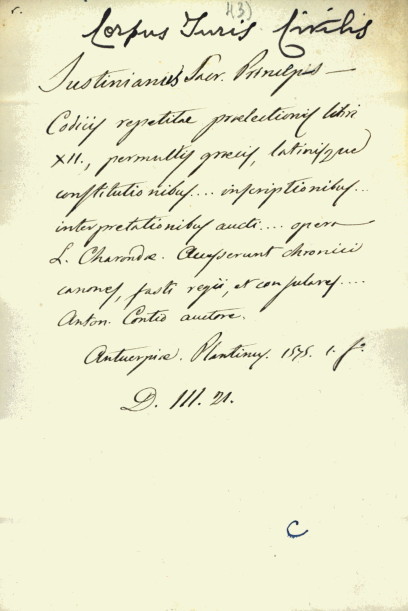 43)
Corpus Iuris Civilis
Justinianus Sacr. Principis —
Codicis repetitae praelectionis libri
XII., permultis graecis, latinisque
constitutionibus.... inscriptionibus...
interpretationibus aucti.... opera
L. Charondae. Accesserunt chronici
canones, fasti regii, et consulares....
Anton. Contio auctore.
Antuerpiae. Plantinus. 1575. 1. f.o
D. III. 21.
C